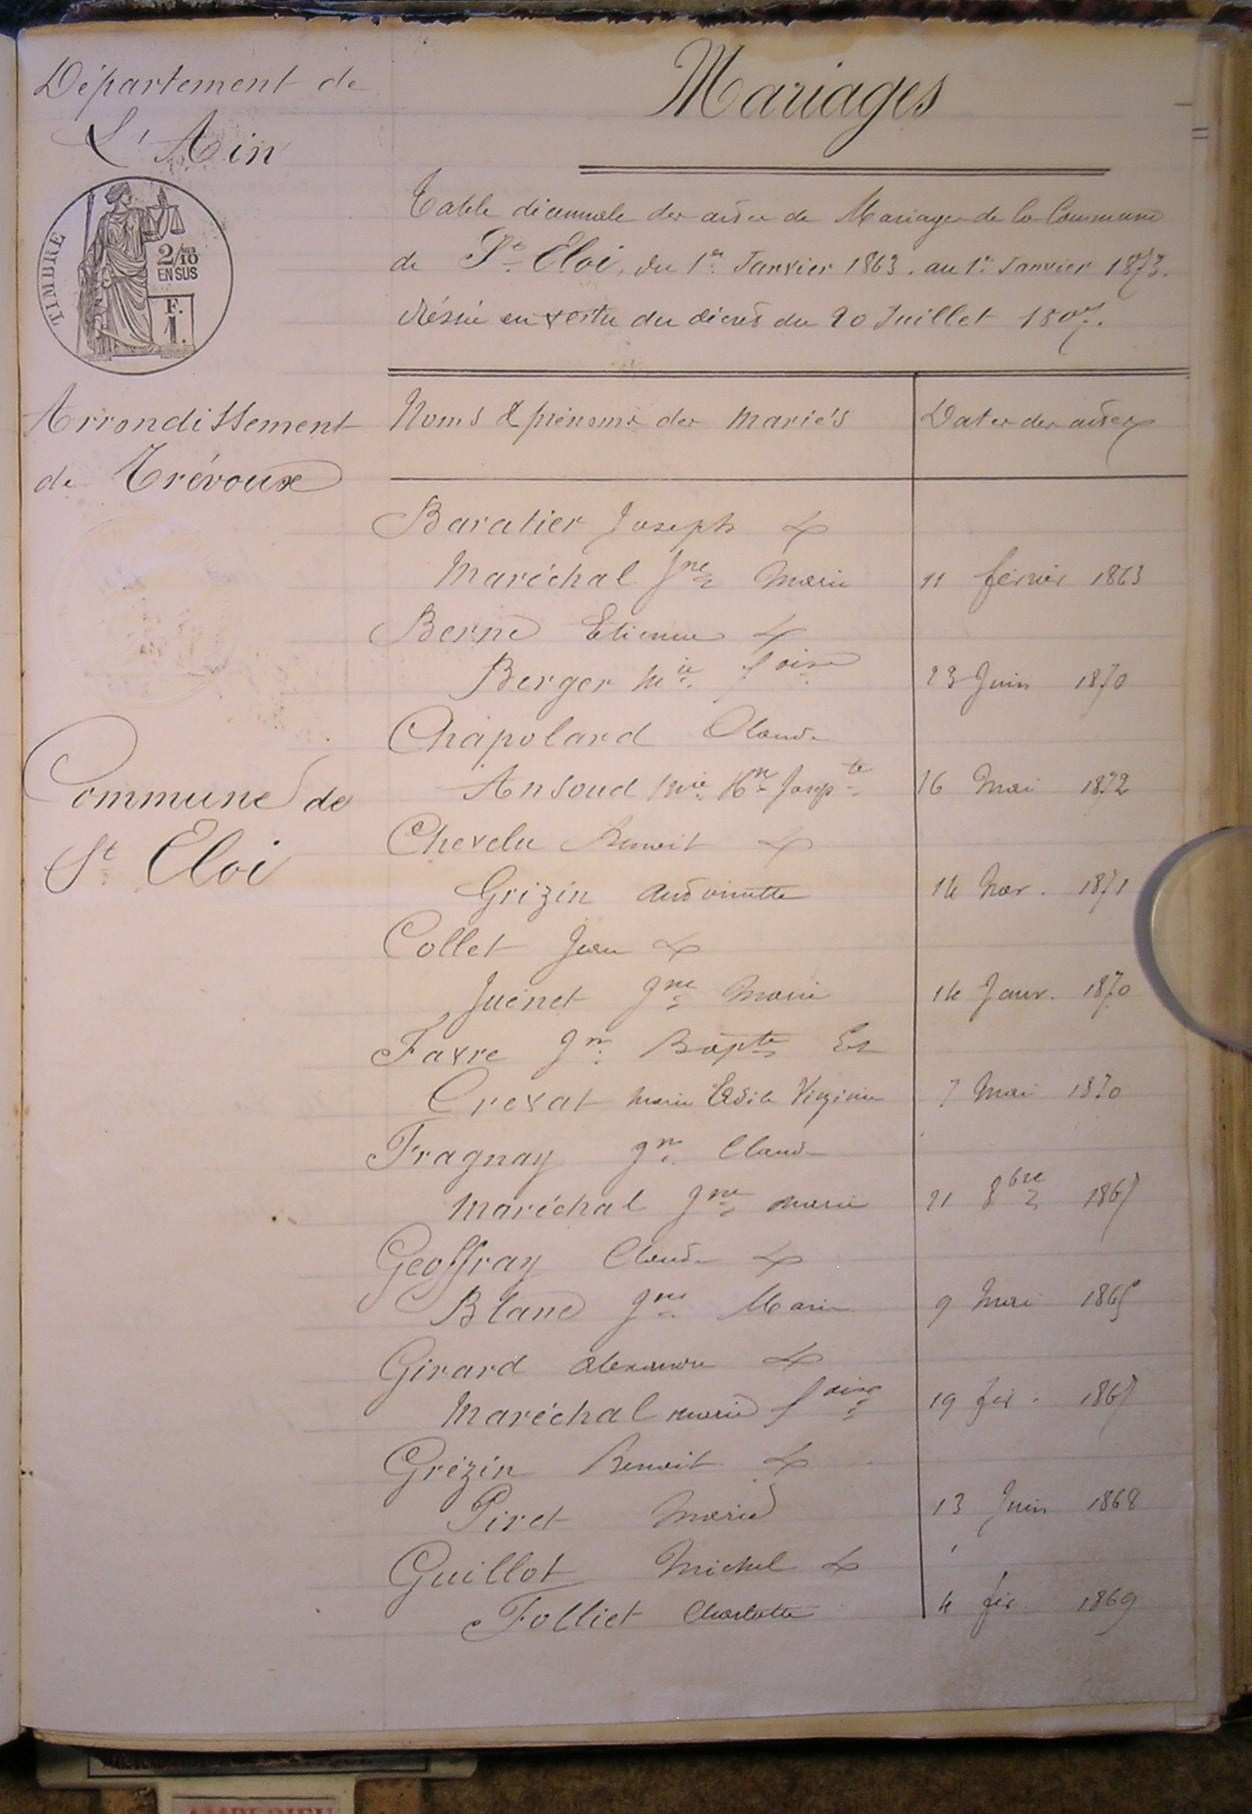 Département de
L'Ain
TIMBRE
2/10
EN SUS
F.
1.
Arrondissement
de Trévoux
Commune de
St Eloi
Mariages
Table décennale des actes de Mariages de la Commune
de St Eloi, du 1er Janvier 1863. au 1er Janvier 1873.
dréssée en vertu du décrés du 20 Juillet 1807.
Noms & prénoms des mariés Dates des actes
Baratier Joseph &
Maréchal Jne Marie 11 février 1863
Berne Etienne &
Berger Mie foise 23 Juin 1870
Chapolard Claude
Ansoud Mie Josepte 16 Mai 1872
Chevelu Benoit &
Grizin Antoinette 14 1871
Collet Jean &
Juénet Jne Marie 14 Janv. 1870
Favre Jn Bapte Et
Crevat Marie Virginie 7 Mai 1870
Fragnay Jn Claude
Maréchal Jne Marie 21 8bre 1867
Geoffray Claude &
Blanc Jne Marie 9 Mai 1865
Girard Alexandre &
Maréchal Marie foise 19 fév. 1867
Grézin Benoit &
Piret Marie 13 Juin 1868
Guillot Michel &
Folliet Charlotte 4 fév. 1869